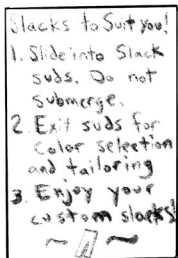 Slacks to Suit you!
1. Slide into Slack
suds. Do not
submerge.
2. Exit suds for
color selection
and tailoring
3. Enjoy your
custom slacks!